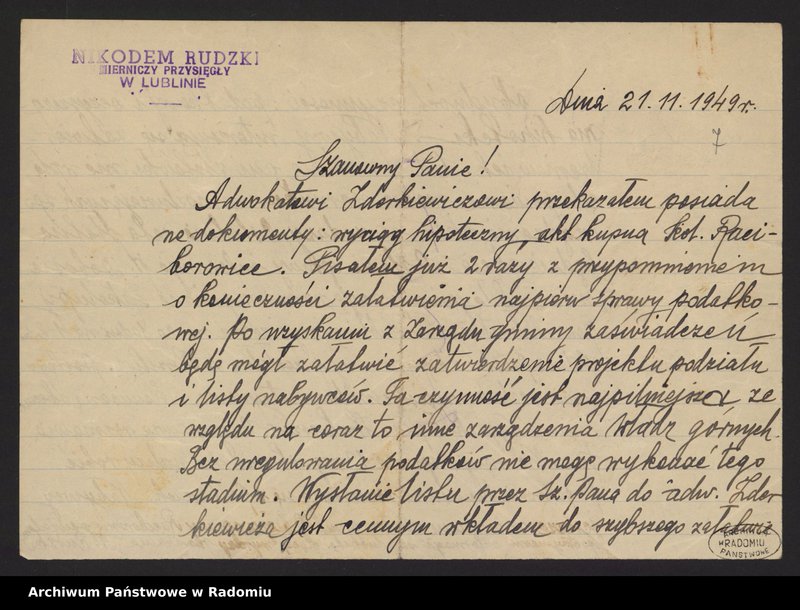 NIKODEM RUDZKI
MIERNICZY PRZYSIĘGŁY
W LUBLINIE
Dnia 21.11.1949r.
7
Szanowny Panie!
Adwokatowi Zderkiewiczowi przekazałem posiada
ne dokumenty: wyciąg hipoteczny, akt kupna kol. Raci-
borowice. Pisałem już 2 razy z przypomnieniem
o konieczności załatwienia najpierw sprawy podatko-
wej. Po uzyskaniu z Zarządu gminy zaświadczeń
będę mógł załatwić zatwierdzenie projektu podziału
i listy nabywców. Ta czynność jest najpilniejsza ze
względu na coraz to inne zarządzenia Władz górnych.
Bez uregulowania podatków nie mogę wykonać tego
stadium. Wysłanie listu przez Sz. Pana do adw. Zder
kiewicza jest cennym wkładem do szybszego
ARCHIWUM
W RADOMIU
PAŃSTWOWE
Archiwum Państwowe w Radomiu